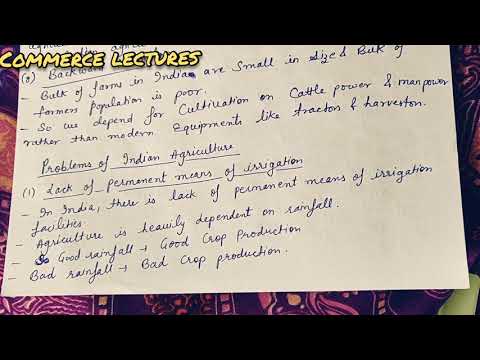 COMMERCE LECTURES
Backward
- Bulk of farms in India are small in size & Bulk of
farmers population is poor.
- So we depend for Cultivation on Cattle power & manpower
rather than modern Equipments like tractor & harvestor.
Problems of Indian Agriculture
(1) Lack of Permanent means of irrigation
- In India, there is lack of permanent means of irrigation
facilities.
- Agriculture is heavily dependent on rainfall.
- Good rainfall → Good Crop Production
- Bad rainfall → Bad Crop production.